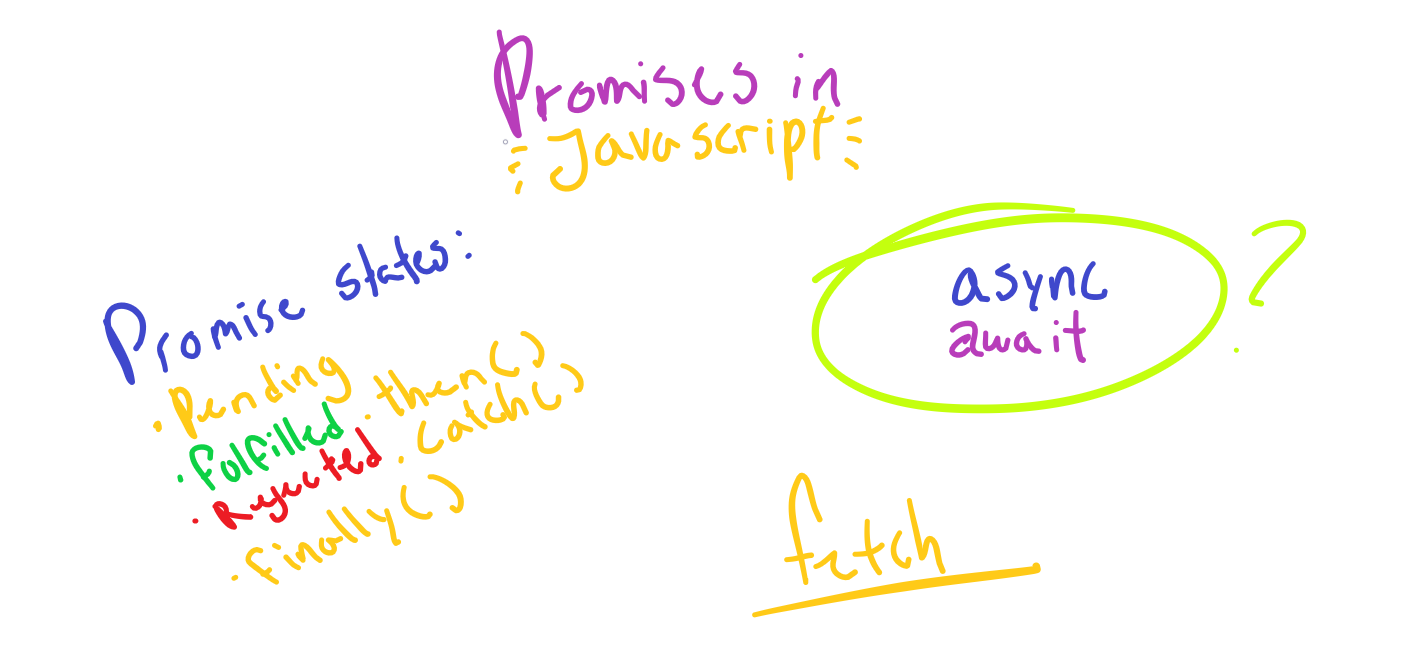 Promises in
Javascript
Promise states:
• Pending
• Fulfilled • then()
• Rejected • catch()
• Finally()
async
await
?
fetch